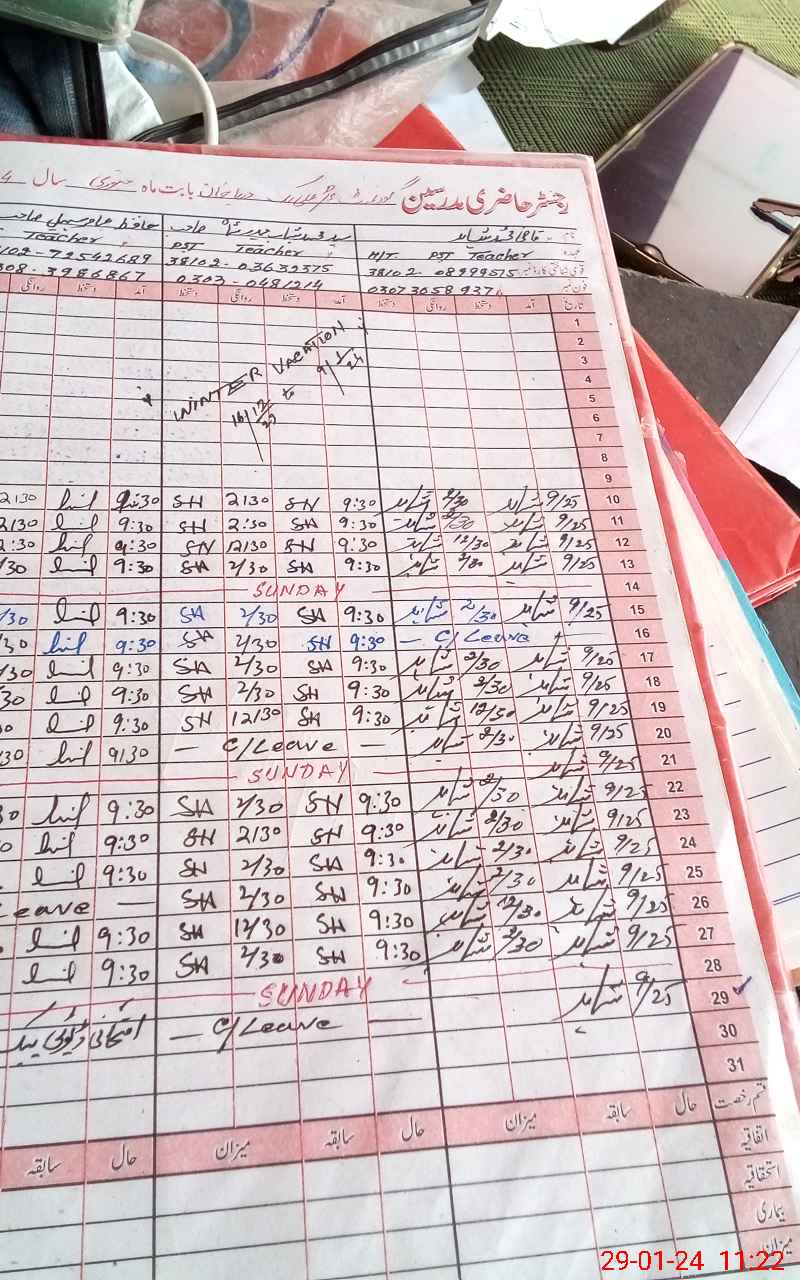 رجسٹر حاضری مدرسین بابت ماہ جنوری سال 4
نام
عہدہ H/T PST Teacher PST Teacher Teacher
قومی شناختی کارڈ نمبر 38102-08999515 38102-03632375 8102-72542689
فون نمبر 03073058937 0303-0481214 308-3986867
تاریخ آمد دستخط روانگی دستخط آمد دستخط روانگی دستخط آمد دستخط روانگی
1
2
3
4
5
6
7
8
WINTER VACATION
16/12/23 to 9/1/24
9
10 9/25 شاہد 2/30 شاہد 9:30 SH 2130 SH 9:30 2130
11 9/25 شاہد 2/30 شاہد 9:30 SH 2:30 SH 9:30 2130
12 9/25 شاہد 12/30 شاہد 9:30 SH 12130 SH 9:30 2:30
13 9/25 شاہد 2/30 شاہد 9:30 SH 2/30 SH 9:30 /30
14 SUNDAY
15 9/25 شاہد 2/30 شاہد 9:30 SH 2/30 SH 9:30 /30
16 — C/Leave — 9:30 SH 2/30 SH 9:30 /30
17 9/25 شاہد 2/30 شاہد 9:30 SH 2/30 SH 9:30 /30
18 9/25 شاہد 2/30 شاہد 9:30 SH 2/30 SH 9:30 /30
19 9/25 شاہد 12/30 شاہد 9:30 SH 12130 SH 9:30 30
20 9/25 شاہد 2/30 شاہد — C/Leave — 9130 130
21 9/25 شاہد SUNDAY
22 9/25 شاہد 2/30 شاہد 9:30 SH 2/30 SH 9:30 30
23 9/25 شاہد 2/30 شاہد 9:30 SH 2130 SH 9:30
24 9/25 شاہد 2/30 شاہد 9:30 SH 2/30 SH 9:30
25 9/25 شاہد 2/30 شاہد 9:30 SH 2/30 SH — Leave
26 9/25 شاہد 12/30 شاہد 9:30 SH 12/30 SH 9:30
27 9/25 شاہد 2/30 شاہد 9:30 SH 2/30 SH 9:30
28 SUNDAY
29 9/25 شاہد — C/Leave — امتحانی ڈیوٹی
30
31
قسم رخصت حال سابقہ میزان حال سابقہ میزان حال سابقہ
اتفاقیہ
استحقاقیہ
بیماری
میزان
29-01-24 11:22